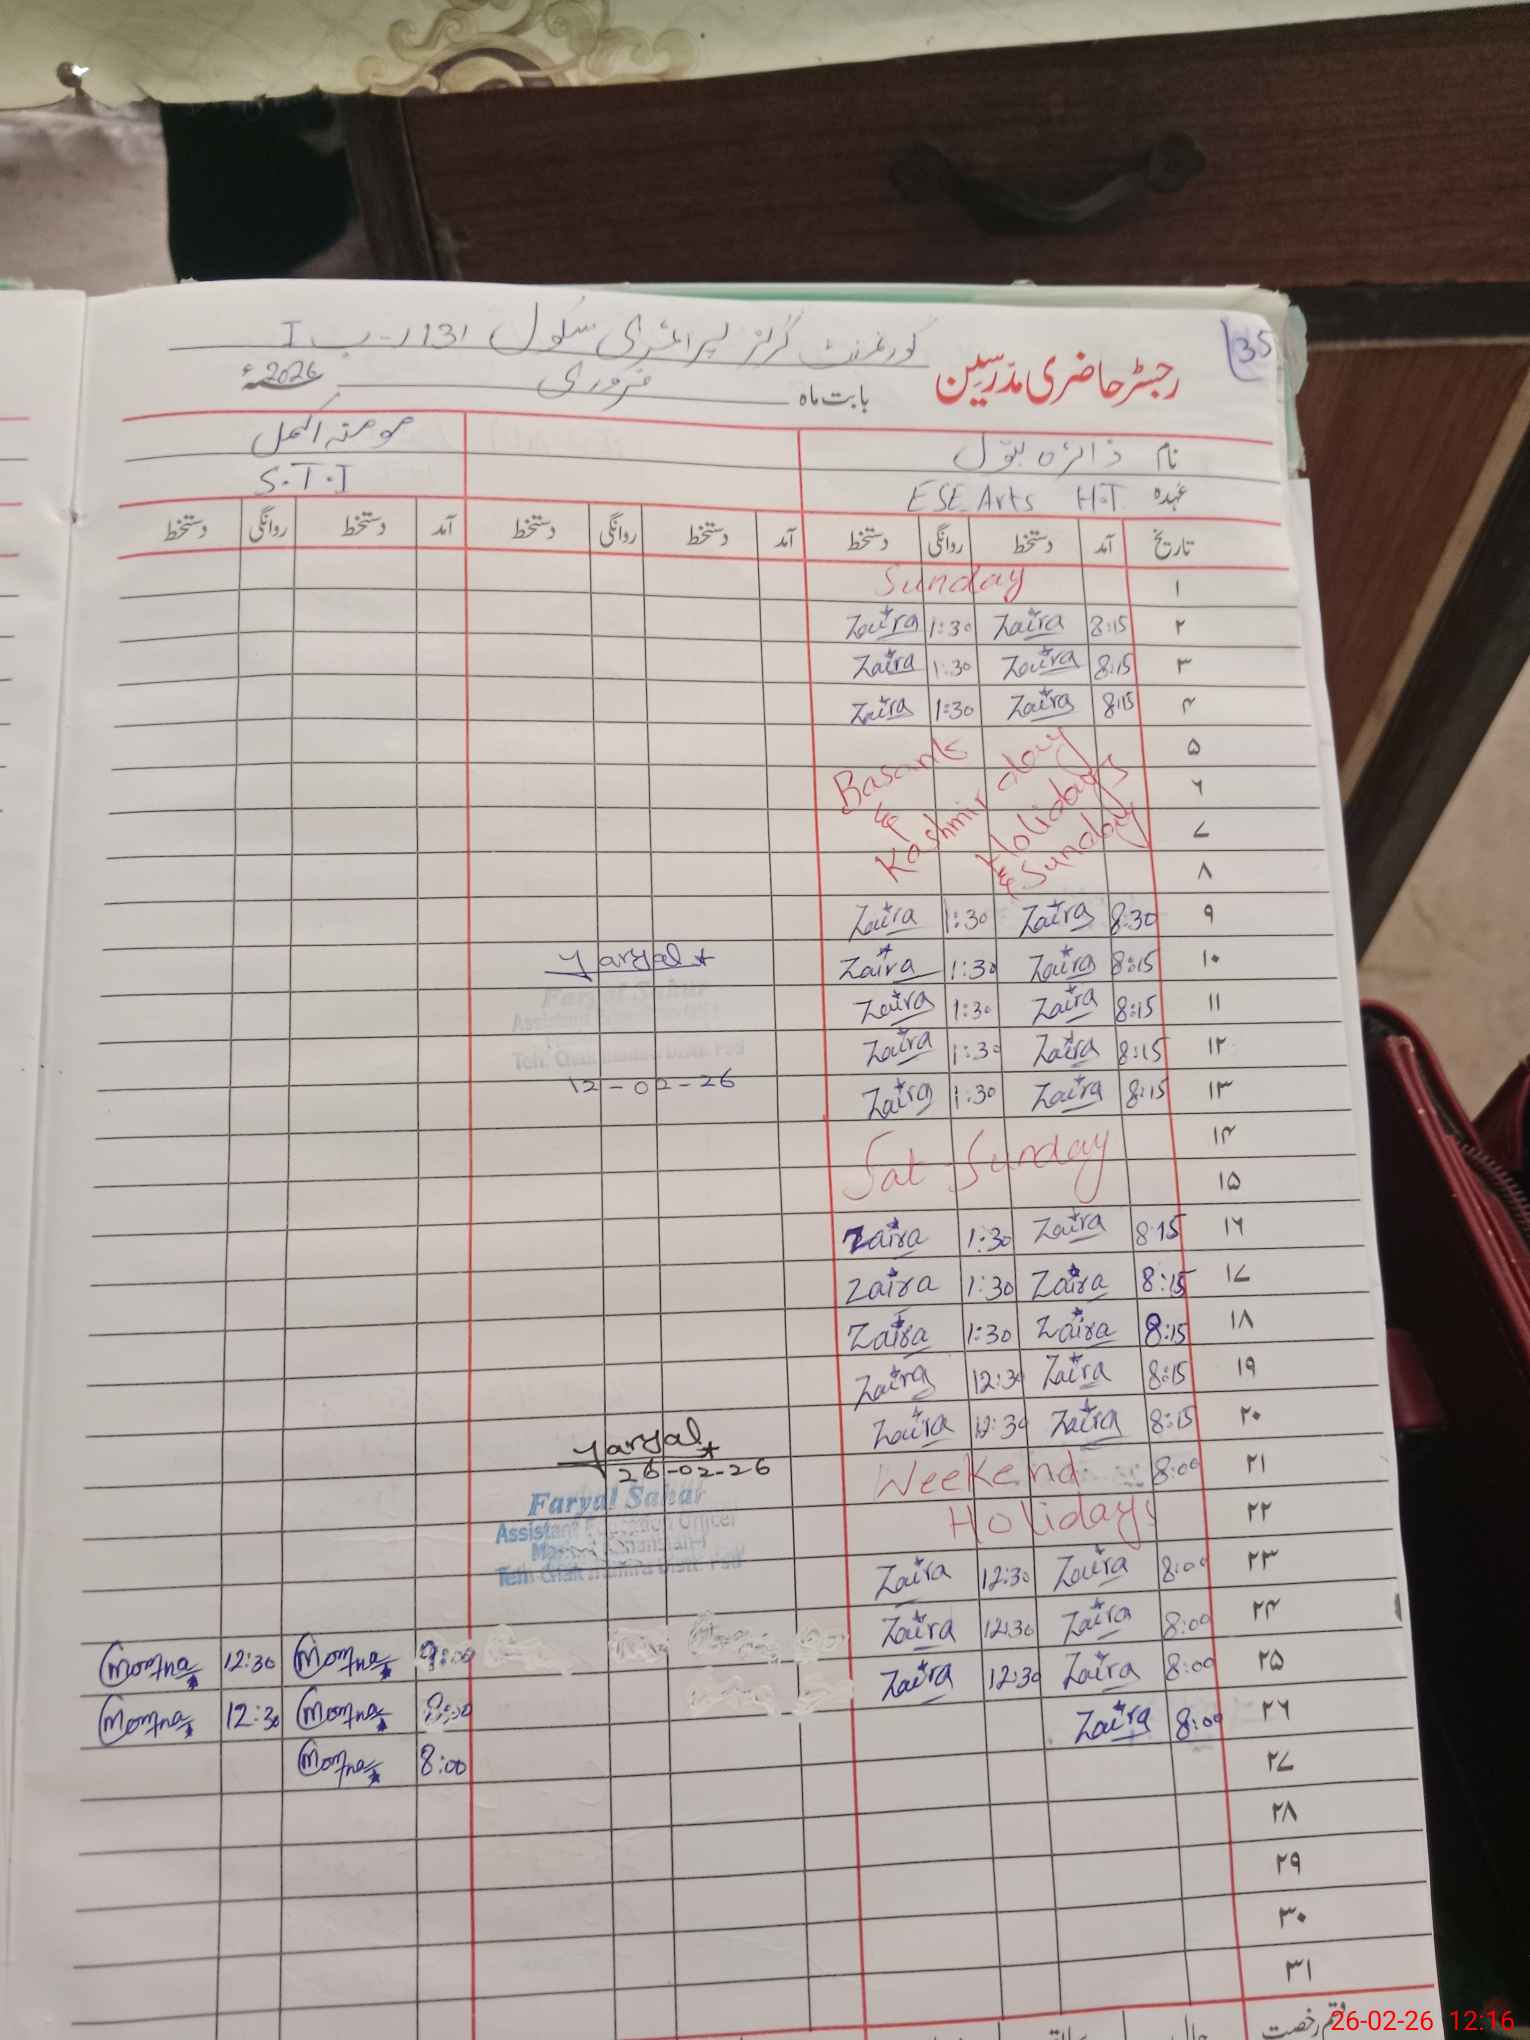 35
گورنمنٹ گرلز پرائمری سکول 131 ر-ب I
رجسٹر حاضری مدرسین
بابت ماہ فروری 2026ء
نام ذائرہ بتول مومنہ اکمل
عہدہ ESE Arts H.T S.T.I
تاریخ آمد دستخط روانگی دستخط آمد دستخط روانگی دستخط آمد دستخط روانگی دستخط
۱ Sunday
۲ 8:15 Zaira 1:30 Zaira
۳ 8:15 Zaira 1:30 Zaira
۴ 8:15 Zaira 1:30 Zaira
۵ Basant
۶ & Kashmir day
۷ Holidays
۸ & Sunday
۹ 8:30 Zaira 1:30 Zaira
۱۰ 8:15 Zaira 1:30 Zaira Faryal
۱۱ 8:15 Zaira 1:30 Zaira Faryal Sahar
Assistant
۱۲ 8:15 Zaira 1:30 Zaira
۱۳ 8:15 Zaira 1:30 Zaira 12-02-26
۱۴ Sat Sunday
۱۵
۱۶ 8:15 Zaira 1:30 Zaira
۱۷ 8:15 Zaira 1:30 Zaira
۱۸ 8:15 Zaira 1:30 Zaira
۱۹ 8:15 Zaira 12:30 Zaira
۲۰ 8:15 Zaira 12:30 Zaira Faryal
26-02-26
۲۱ 8:00 Weekend Faryal Sahar
۲۲ Holidays Assistant Education Officer
۲۳ 8:00 Zaira 12:30 Zaira
۲۴ 8:00 Zaira 12:30 Zaira 9:00 Momna 12:30 Momna
۲۵ 8:00 Zaira 12:30 Zaira Momna 12:30 Momna
۲۶ 8:00 Zaira 8:00 Momna
۲۷
۲۸
۲۹
۳۰
۳۱
رخصت
26-02-26 12:16